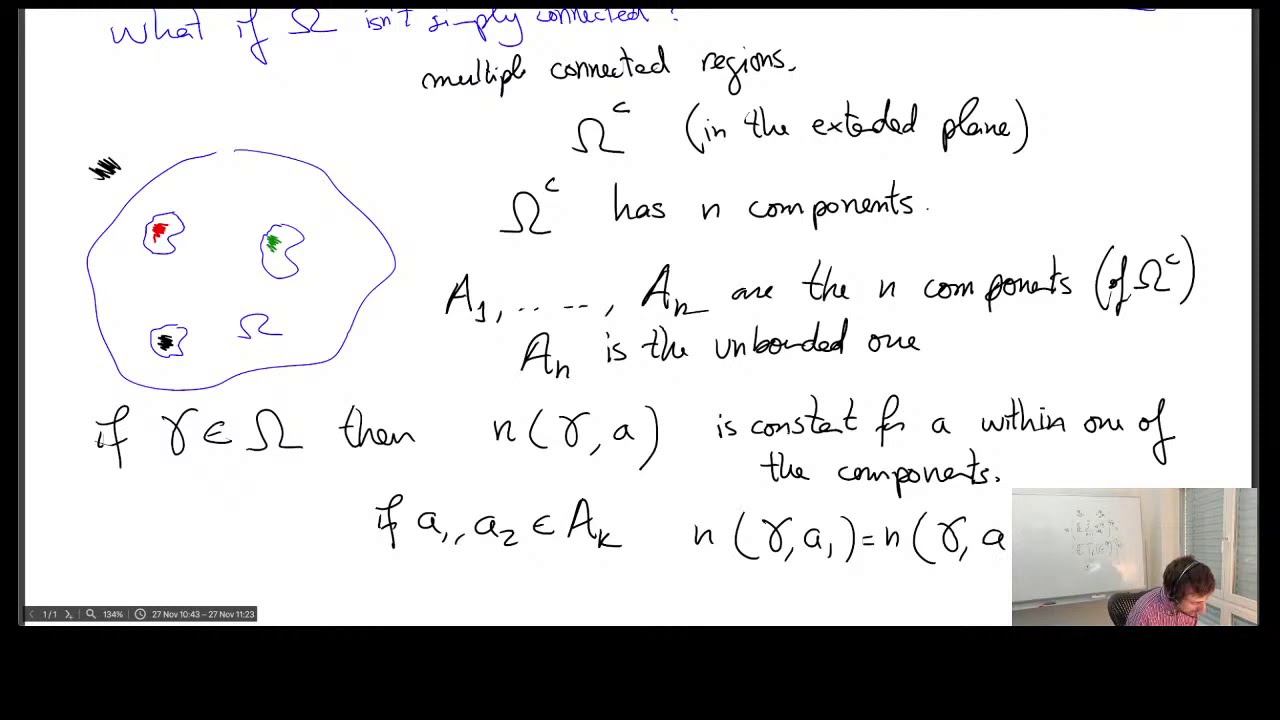 What if Ω isn't simply connected?
multiple connected regions.
Ω^c (in the extended plane)
Ω^c has n components.
A_1, ...., A_n are the n components (of Ω^c)
A_n is the unbounded one
Ω
if γ ∈ Ω then n(γ, a) is constant for a within one of
the components.
if a_1, a_2 ∈ A_k n(γ, a_1) = n(γ, a
1/1 134% 27 Nov 10:43 – 27 Nov 11:23